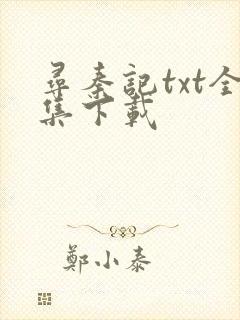 尋秦記txt全
集下載
鄭小泰